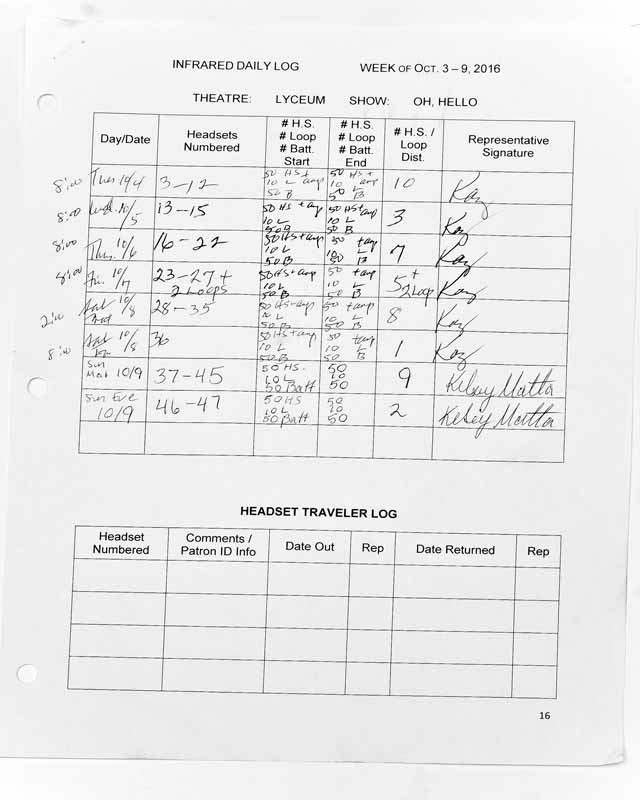 INFRARED DAILY LOG WEEK OF OCT. 3 – 9, 2016
THEATRE: LYCEUM SHOW: OH, HELLO
Day/Date
Headsets
Numbered
# H.S.
# Loop
# Batt.
Start
# H.S.
# Loop
# Batt.
End
# H.S. /
Loop
Dist.
Representative
Signature
8:00 Tues 10/4
3-12
50 HS+ amp
10 L
50 B
50 HS+ amp
10 L
50 B
10
Kaz
8:00 Wed. 10/5
13-15
50 HS+amp
10 L
50B
50 HS+amp
10 L
50 B
3
Kaz
8:00 Thu. 10/6
16-22
50 HS+amp
10 L
50B
50 +amp
10 L
50 B
7
Kaz
8:00 Fri. 10/7
23-27+
2 Loops
50 HS+amp
10 L
50 B
50 +amp
10 L
50 B
5+
2 Loop
Kaz
2:00 Sat 10/8
Mat
28-35
50 HS+amp
10 L
50 B
50 +amp
10 L
50 B
8
Kaz
8:00 Sat 10/8
36
50 HS+amp
10 L
50 B
50 +amp
10 L
50 B
1
Kaz
Sun
Mat 10/9
37-45
50 HS.
10 L
50 Batt
50
10
50
9
Kelsey Matta
Sun Eve
10/9
46-47
50 HS
10 L
50 Batt
50
10
50
2
Kelsey Matta
HEADSET TRAVELER LOG
Headset
Numbered
Comments /
Patron ID Info
Date Out
Rep
Date Returned
Rep
16